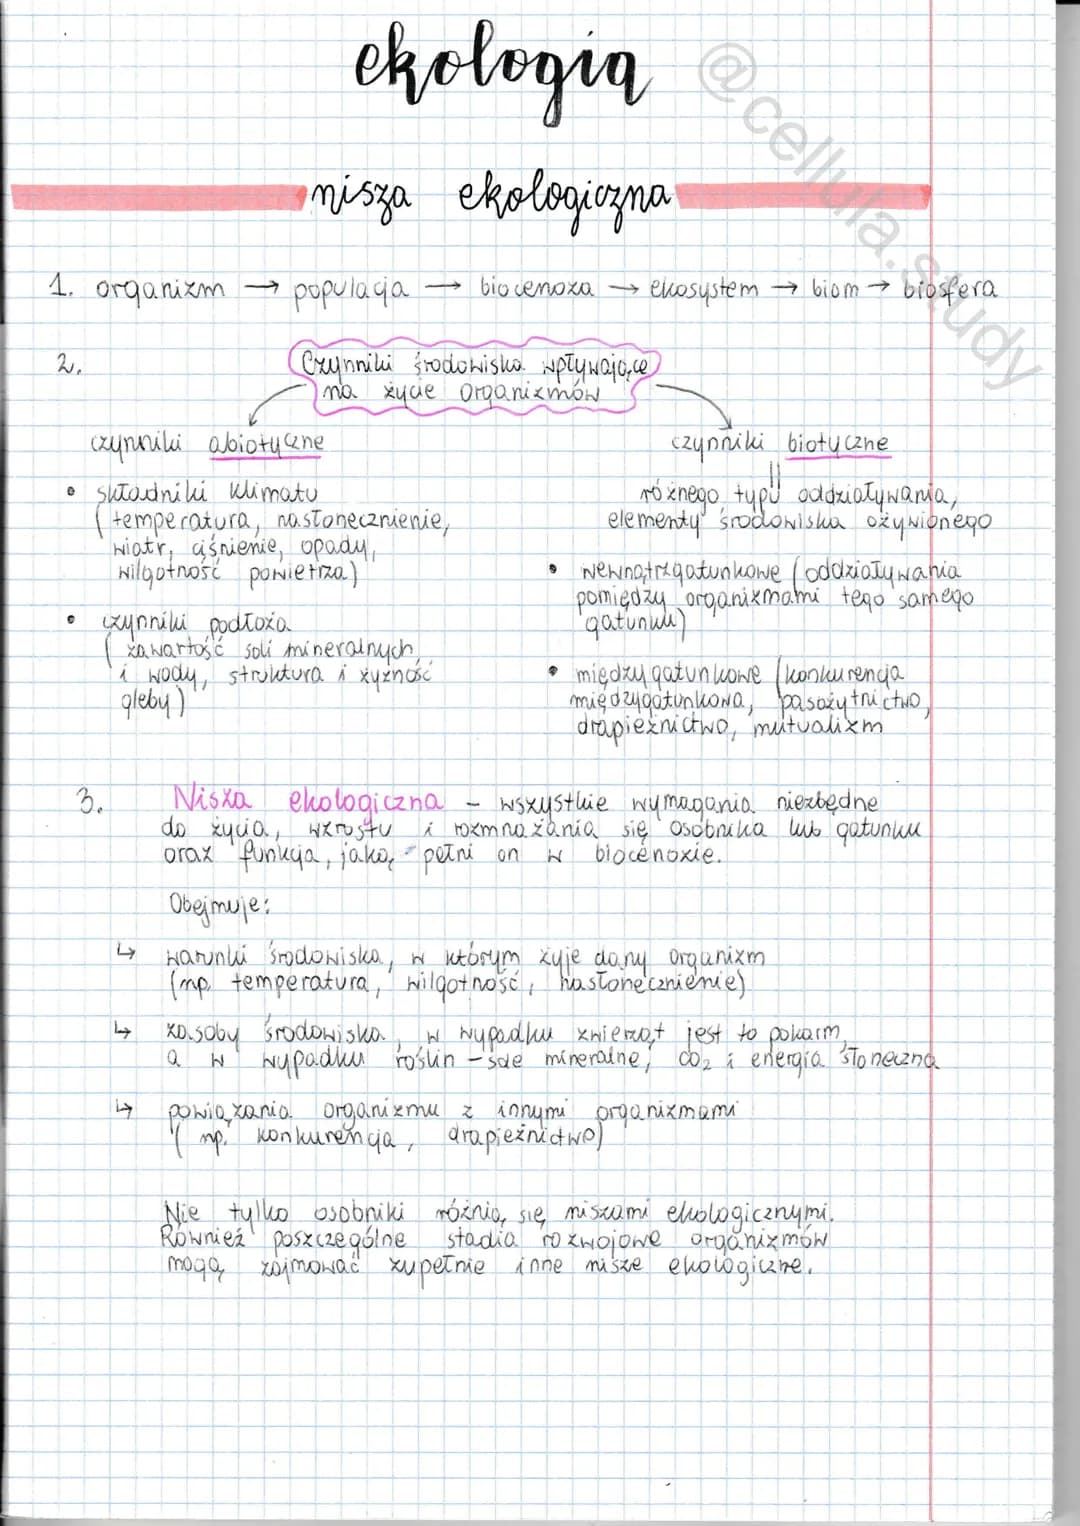 ekologia
@cellula.study
nisza ekologiczna
1. organizm → populacja → biocenoza → ekosystem → biom → biosfera
2. Czynniki środowiska wpływające
na życie organizmów
czynniki abiotyczne
• składniki klimatu
(temperatura, nasłonecznienie,
wiatr, ciśnienie, opady,
wilgotność powietrza)
• czynniki podłoża
(zawartość soli mineralnych
i wody, struktura i żyzność
gleby)
czynniki biotyczne
||
różnego typu oddziaływania,
elementy środowiska ożywionego
• wewnątrzgatunkowe (oddziaływania
pomiędzy organizmami tego samego
gatunku)
• międzygatunkowe (konkurencja
międzygatunkowa, pasożytnictwo,
drapieżnictwo, mutualizm
3. Nisza ekologiczna - wszystkie wymagania niezbędne
do życia, wzrostu i rozmnażania się osobnika lub gatunku
oraz funkcja, jaką pełni on w biocenozie.
Obejmuje:
↳ warunki środowiska, w którym żyje dany organizm
(np. temperatura, wilgotność, nasłonecznienie)
↳ zasoby środowiska, w wypadku zwierząt jest to pokarm,
a w wypadku roślin - sole mineralne, CO₂ i energia słoneczna
↳ powiązania organizmu z innymi organizmami
(np. konkurencja, drapieżnictwo)
Nie tylko osobniki różnią się niszami ekologicznymi.
Również poszczególne stadia rozwojowe organizmów
mogą zajmować zupełnie inne nisze ekologiczne.